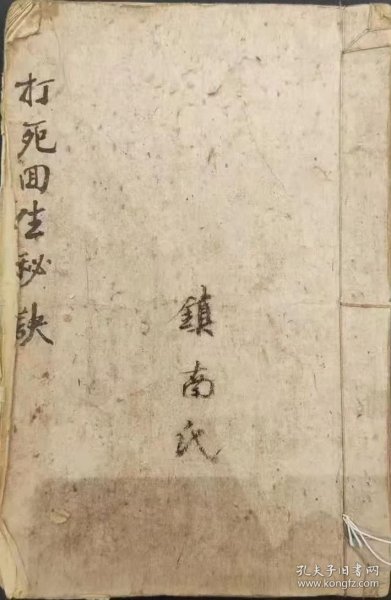 打死回生秘訣
鎮南氏
孔夫子旧书网
www.kongfz.com